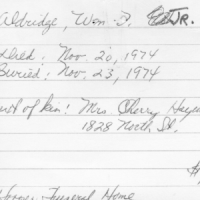 Aldridge, Wm. P. JR.
Died: Nov. 20, 1974
Buried: Nov. 23, 1974
Next of kin: Mrs. Cherry
1828 North St.
$
Funeral Home